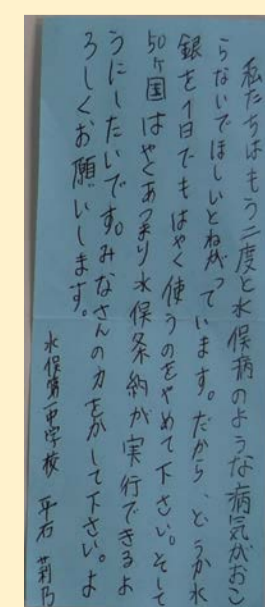 私たちはもう二度と水俣病のような病気がおこ
らないでほしいとねがっています。だから、どうか水
銀を1日でもはやく使うのをやめて下さい。そして
50ヶ国はやくあつまり水俣条約が実行できるよ
うにしたいです。みなさんの力をかして下さい。よ
ろしくお願いします。
水俣第一中学校 平石 莉乃